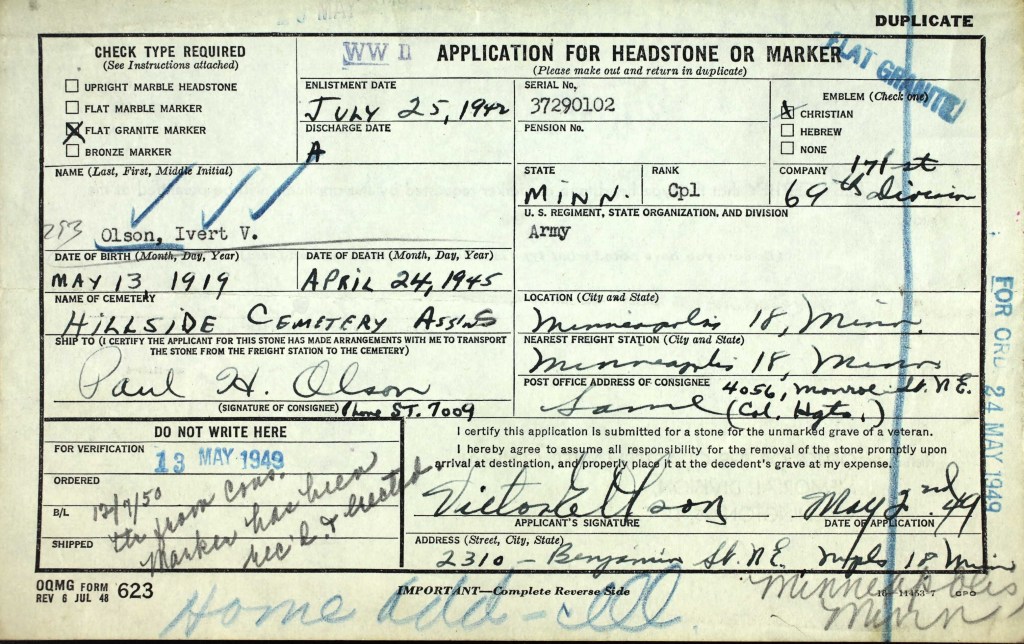 DUPLICATE
CHECK TYPE REQUIRED
(See Instructions attached)
UPRIGHT MARBLE HEADSTONE
FLAT MARBLE MARKER
FLAT GRANITE MARKER
BRONZE MARKER
WW II
APPLICATION FOR HEADSTONE OR MARKER
(Please make out and return in duplicate)
FLAT GRANITE
ENLISTMENT DATE
JULY 25, 1942
DISCHARGE DATE
A
SERIAL No.
37290102
PENSION No.
EMBLEM (Check one)
CHRISTIAN
HEBREW
NONE
NAME (Last, First, Middle Initial)
Olson, Ivert V.
STATE
MINN.
RANK
Cpl
COMPANY 171st
69th Division
U. S. REGIMENT, STATE ORGANIZATION, AND DIVISION
Army
DATE OF BIRTH (Month, Day, Year)
MAY 13, 1919
DATE OF DEATH (Month, Day, Year)
APRIL 24, 1945
NAME OF CEMETERY
HILLSIDE CEMETERY
LOCATION (City and State)
Minneapolis 18, Minn.
SHIP TO (I CERTIFY THE APPLICANT FOR THIS STONE HAS MADE ARRANGEMENTS WITH ME TO TRANSPORT
THE STONE FROM THE FREIGHT STATION TO THE CEMETERY)
Paul H. Olson
(SIGNATURE OF CONSIGNEE) Phone ST. 7009
NEAREST FREIGHT STATION (City and State)
Minneapolis 18, Minn
POST OFFICE ADDRESS OF CONSIGNEE 4056, Monroe St. N.E.
Same (Col. Hgts.)
FOR ORD 24 MAY 1949
DO NOT WRITE HERE
FOR VERIFICATION
13 MAY 1949
ORDERED
B/L
SHIPPED
12/7/50
ltr from cons.
Marker has been
rec'd. & erected
I certify this application is submitted for a stone for the unmarked grave of a veteran.
I hereby agree to assume all responsibility for the removal of the stone promptly upon
arrival at destination, and properly place it at the decedent's grave at my expense.
Victor E Olson May 2nd 49
APPLICANT'S SIGNATURE DATE OF APPLICATION
ADDRESS (Street, City, State)
2310 - Benjamin St. N.E. Mpls 18 Minn
OQMG FORM 623
REV 6 JUL 48
IMPORTANT—Complete Reverse Side
16-11453-7 GPO
Minneapolis
Minn
Home add-